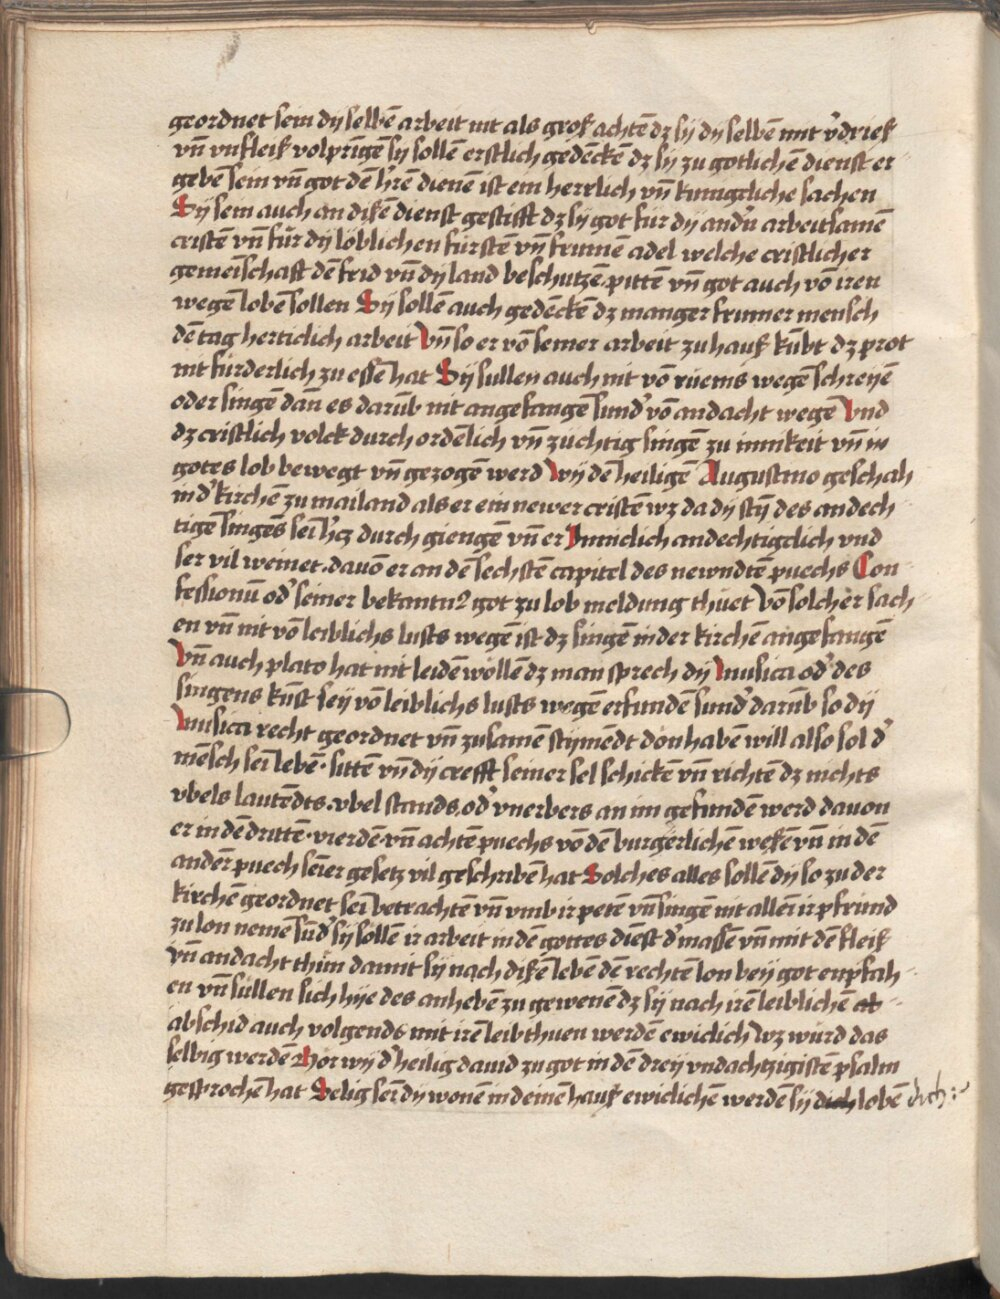 geordnet sein dy selbē arbeit nit als groß achtē dz sy dy selbē mit v̓drieß
vn̄ vnfleiß volprīgē sy sollē erstlich gedēckē dz sy zu gotlichē dienst er
gebē sein vn̄ got dē h̓rē dienē ist ein herrlich vn̄ kunigcliche sachen
Sy sein auch an dißē dienst gestifft dz sy got für dy and̓n arbeitsamē
cristē vn̄ für dy loblichen fürstē vn̄ frumē adel welche cristlicher
gemeīschaft dē frid vn̄ dy land beschutzē pittē vn̄ got auch vō iren
wegē lobē sollen Sy sollē auch gedēckē dz manger frumer mensch
dē tag herticlich arbeit Vn̄ so er vō seiner arbeit zu hauß kūbt dz prot
nit fürderlich zu essē hat Sy sullen auch nit vō rüems wegē schreyē
oder singē dan̄ es darūb nit angefangē sund̓ vō andacht wegē Vnd
dz cristlich volck durch ordēlich vn̄ züchtig singē zu innikeit vn̄ in
gotes lob bewegt vn̄ gezogē werd Wy dē heiligē Augustino geschah
in d̓ kirchē zu mailand als er ein newer cristē wz da dy stȳ des andech
tigē singēs sei h̓cz durch giengē vn̄ er Inniclich andechtigclich vnd
ser vil weinet. dauō er an dē sechstē capitel des newndtē puechs Con
fessionū od̓ seiner bekantn2 got zu lob meldung thüet Vō solcher sach
en vn̄ nit vō leiblichs lusts wegē ist dz singē in der kirchē angefangē
Vn̄ auch plato hat nit leidē wöllē dz man sprech dy Musica od̓ des
singens kūst sey vō leiblichs lusts wegē erfundē sund̓ darūb so dy
Musica recht geordnet vn̄ zusamē stymēdt dön habē will also sol d̓
mēsch sei lebē. sittē vn̄ dy crefft seiner sel schickē vn̄ richtē dz nichts
vbels lautēdts. vbel stands. od̓ vnerbers an im gefundē werd dauon
er in dē drittē. vierdē. vn̄ achtē puechs vō dē burgerlichē weßē vn̄ in dē
anderē puech seīer gesetz vil geschribē hat Solches alles sollē dy so zu der
kirchē geordnet sei betrachtē vn̄ vmb ir petē vn̄ singē nit allei ir pfründ
zu lon nemē sūd̓ sy söllē ir arbeit in dē gottes diēst d̓massē vn̄ mit dē fleiß
vn̄ andacht thün damit sy nach dißē lebē dē rechtē lon bey got enpfah
en vn̄ süllen sich hye des anhebē zu gewenē dz sy nach irē leiblichē ab
abschid auch volgends mit irē leib thuen werdē ewiclich Wz würd das
selbig werdē Hör wy d̓ heilig dauid zu got in dē drey vndachtzigistē psalm
gesprochē hat Selig seīd dy wonē in deinē hauß ewiclichē werdē sy dich lobē dich :~